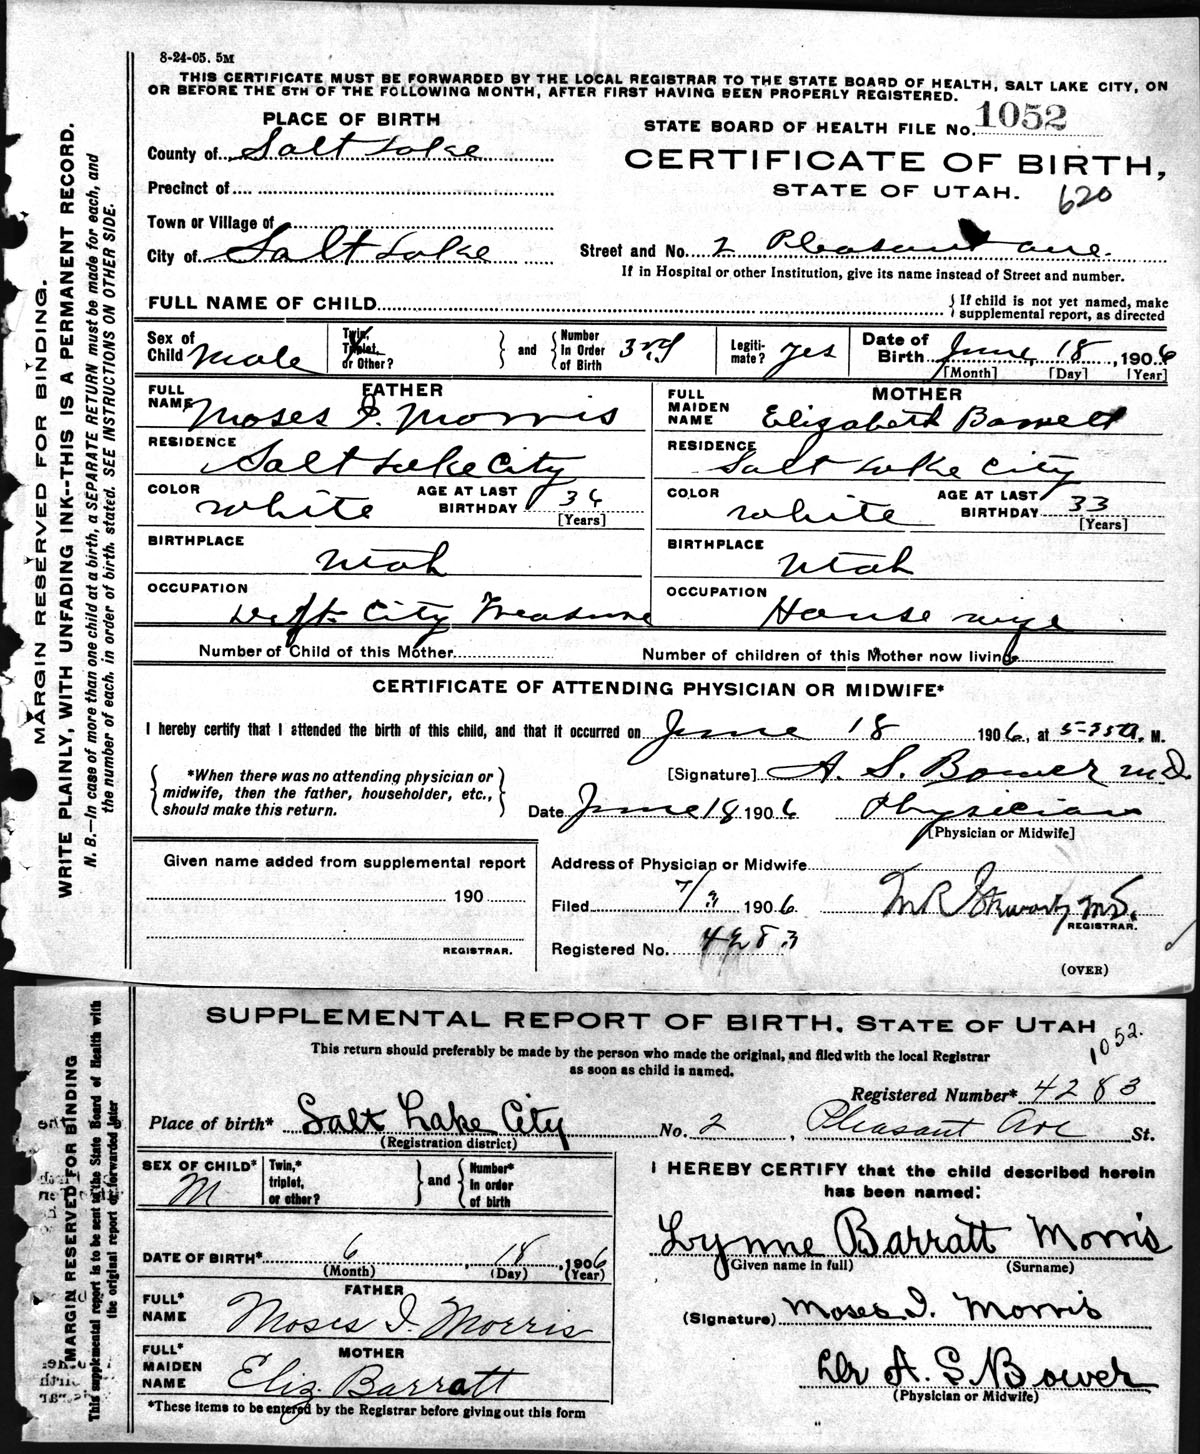 8-24-05. 5M
THIS CERTIFICATE MUST BE FORWARDED BY THE LOCAL REGISTRAR TO THE STATE BOARD OF HEALTH, SALT LAKE CITY, ON
OR BEFORE THE 5TH OF THE FOLLOWING MONTH, AFTER FIRST HAVING BEEN PROPERLY REGISTERED.
PLACE OF BIRTH
STATE BOARD OF HEALTH FILE No. 1052
County of Salt Lake
CERTIFICATE OF BIRTH,
Precinct of
STATE OF UTAH. 620
Town or Village of
City of Salt Lake
Street and No. 2 Pleasant ave.
If in Hospital or other Institution, give its name instead of Street and number.
FULL NAME OF CHILD { If child is not yet named, make
supplemental report, as directed
Sex of Child Male
Twin, Triplet, or Other? } and { Number In Order of Birth 3rd
Legitimate? yes
Date of Birth June 18, 1906
[Month] [Day] [Year]
FATHER
FULL NAME Moses I. Morris
MOTHER
FULL MAIDEN NAME Elizabeth Barrett
RESIDENCE Salt Lake City
RESIDENCE Salt Lake City
COLOR White AGE AT LAST BIRTHDAY 36 [Years]
COLOR White AGE AT LAST BIRTHDAY 33 [Years]
BIRTHPLACE Utah
BIRTHPLACE Utah
OCCUPATION Dept. City Treasure
OCCUPATION House wife
Number of Child of this Mother
Number of children of this Mother now living
CERTIFICATE OF ATTENDING PHYSICIAN OR MIDWIFE*
I hereby certify that I attended the birth of this child, and that it occurred on June 18 1906, at 5-35 a. M.
{ *When there was no attending physician or
midwife, then the father, householder, etc.,
should make this return. }
[Signature] A. S. Bower M.D.
Date June 18 1906 Physician
[Physician or Midwife]
Given name added from supplemental report
190
REGISTRAR.
Address of Physician or Midwife
Filed 7/3 1906
M.D.
REGISTRAR.
Registered No. 4283
(OVER)
MARGIN RESERVED FOR BINDING.
WRITE PLAINLY, WITH UNFADING INK--THIS IS A PERMANENT RECORD.
N. B.—In case of more than one child at a birth, a SEPARATE RETURN must be made for each, and
the number of each, in order of birth, stated. SEE INSTRUCTIONS ON OTHER SIDE.
SUPPLEMENTAL REPORT OF BIRTH. STATE OF UTAH
1052.
This return should preferably be made by the person who made the original, and filed with the local Registrar
as soon as child is named.
Registered Number* 4283
Place of birth* Salt Lake City No. 2, Pleasant Ave St.
(Registration district)
SEX OF CHILD* M
Twin,* triplet, or other? } and { Number* In order of birth
I HEREBY CERTIFY that the child described herein
has been named:
Lynne Barratt Morris
(Given name in full) (Surname)
DATE OF BIRTH* 6, 18, 1906
(Month) (Day) (Year)
FATHER
FULL* NAME Moses I. Morris
(Signature) Moses I. Morris
MOTHER
FULL* MAIDEN NAME Eliz Barratt
Dr A. S. Bower
(Physician or Midwife)
*These items to be entered by the Registrar before giving out this form
MARGIN RESERVED FOR BINDING
This supplemental report is to be sent to the State Board of Health with
the original report or forwarded later